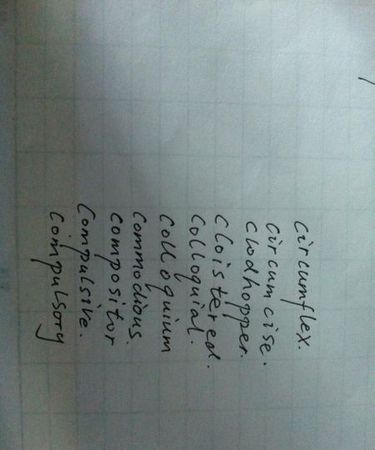 circumflex.
circumcise.
clodhopper.
cloistered.
colloquial.
colloquium
commodious.
compositor
compulsive.
compulsory